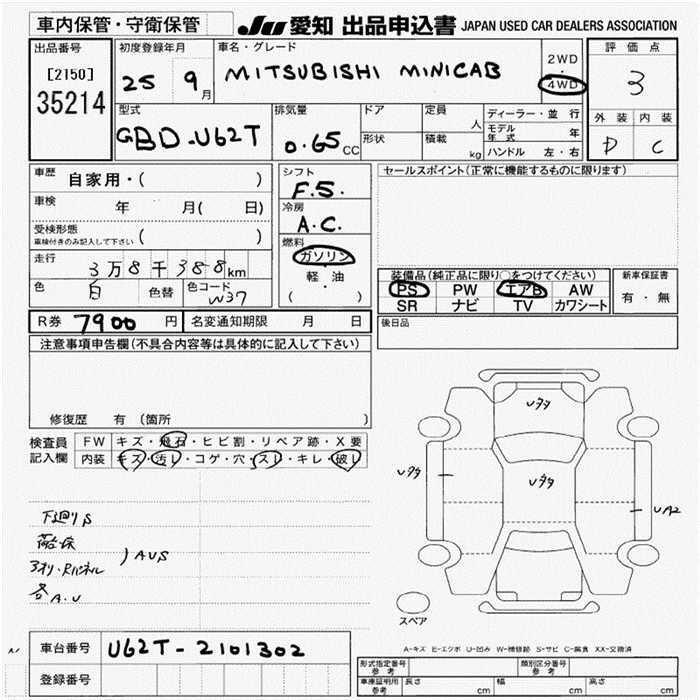 車内保管・守衛保管
JU 愛知 出品申込書 JAPAN USED CAR DEALERS ASSOCIATION
出品番号
[2150]
35214
初度登録年月
25 9月
車名・グレード
MITSUBISHI MINICAB
2WD
・
4WD
評価点
3
外装 内装
D C
型式
GBD-U62T
排気量
0.65 CC
ドア
形状
定員
人
積載
kg
ディーラー・並行
モデル年式 年
ハンドル 左・右
車歴 自家用・( )
車検 年 月( 日)
受検形態
車検付きのみ記入して下さい ( )
走行 3万8千388km
色 白 色替 色コード W37
シフト
F.5.
冷房
A.C.
燃料
ガソリン
・
軽・油
( )
セールスポイント(正常に機能するものに限ります)
装備品(純正品に限り○をつけてください)
PS PW エアB AW
SR ナビ TV カワシート
新車保証書
有・無
後日品
R券 7900 円 名変通知期限 月 日
注意事項申告欄(不具合内容等は具体的に記入して下さい)
修復歴 有(箇所 )
検査員 FW キズ・飛石・ヒビ割・リペア跡・X要
記入欄 内装 キズ・汚レ・コゲ・穴・スレ・キレ・破レ
下廻りS
荷台床
アオリ・Rパネル
) AUS
各A.U
Uタタ
Uタタ
Uタタ
UA2
スペア
A-キズ E-エクボ U-凹み W-補修跡 S-サビ C-腐食 XX-交換済
車台番号 U62T-2101302
登録番号
形式指定番号 参考
類別区分番号 参考
車庫証明用 参考 長さ cm 幅 cm 高さ cm